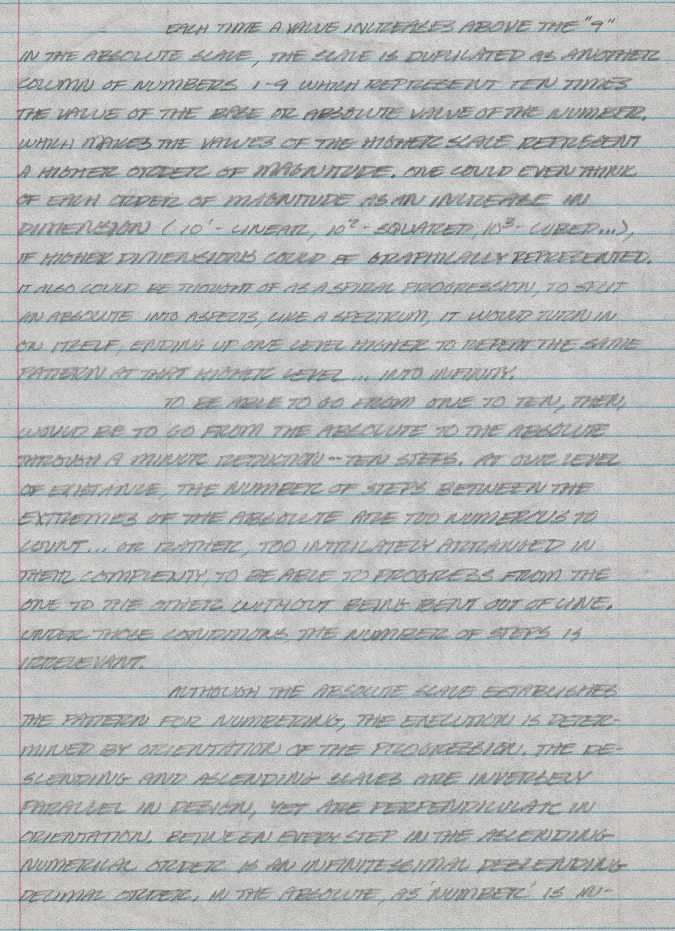 EACH TIME A VALUE INCREASES ABOVE THE "9"
IN THE ABSOLUTE SCALE, THE SCALE IS DUPLICATED AS ANOTHER
COLUMN OF NUMBERS 1-9 WHICH REPRESENT TEN TIMES
THE VALUE OF THE BASE OR ABSOLUTE VALUE OF THE NUMBER.
WHICH MAKES THE VALUES OF THE HIGHER SCALE REPRESENT
A HIGHER ORDER OF MAGNITUDE. ONE COULD EVEN THINK
OF EACH ORDER OF MAGNITUDE AS AN INCREASE IN
DIMENSION (10¹- LINEAR, 10²- SQUARED, 10³- CUBED...),
IF HIGHER DIMENSIONS COULD BE GRAPHICALLY REPRESENTED.
IT ALSO COULD BE THOUGHT OF AS A SPIRAL PROGRESSION, TO SPLIT
AN ABSOLUTE INTO ASPECTS, LIKE A SPECTRUM, IT WOULD TURN IN
ON ITSELF, ENDING UP ONE LEVEL HIGHER TO REPEAT THE SAME
PATTERN AT THAT HIGHER LEVEL... INTO INFINITY.
TO BE ABLE TO GO FROM ONE TO TEN, THEN,
WOULD BE TO GO FROM THE ABSOLUTE TO THE ABSOLUTE
THROUGH A MINOR REDUCTION - TEN STEPS. AT OUR LEVEL
OF EXISTANCE, THE NUMBER OF STEPS BETWEEN THE
EXTREMES OF THE ABSOLUTE ARE TOO NUMEROUS TO
COUNT... OR RATHER, TOO INTRICATELY ARRANGED IN
THEIR COMPLEXITY, TO BE ABLE TO PROGRESS FROM THE
ONE TO THE OTHER WITHOUT BEING BENT OUT OF LINE.
UNDER THOSE CONDITIONS, THE NUMBER OF STEPS IS
IRRELEVANT.
ALTHOUGH THE ABSOLUTE SCALE ESTABLISHES
THE PATTERN FOR NUMBERING, THE EXECUTION IS DETER-
MINED BY ORIENTATION OF THE PROGRESSION. THE DE-
SCENDING AND ASCENDING SCALES ARE INVERSELY
PARALLEL IN DESIGN, YET ARE PERPENDICULAR IN
ORIENTATION. BETWEEN EVERY STEP IN THE ASCENDING
NUMERICAL ORDER IS AN INFINITESSIMAL DESCENDING
DECIMAL ORDER. IN THE ABSOLUTE, AS 'NUMBER' IS NU-